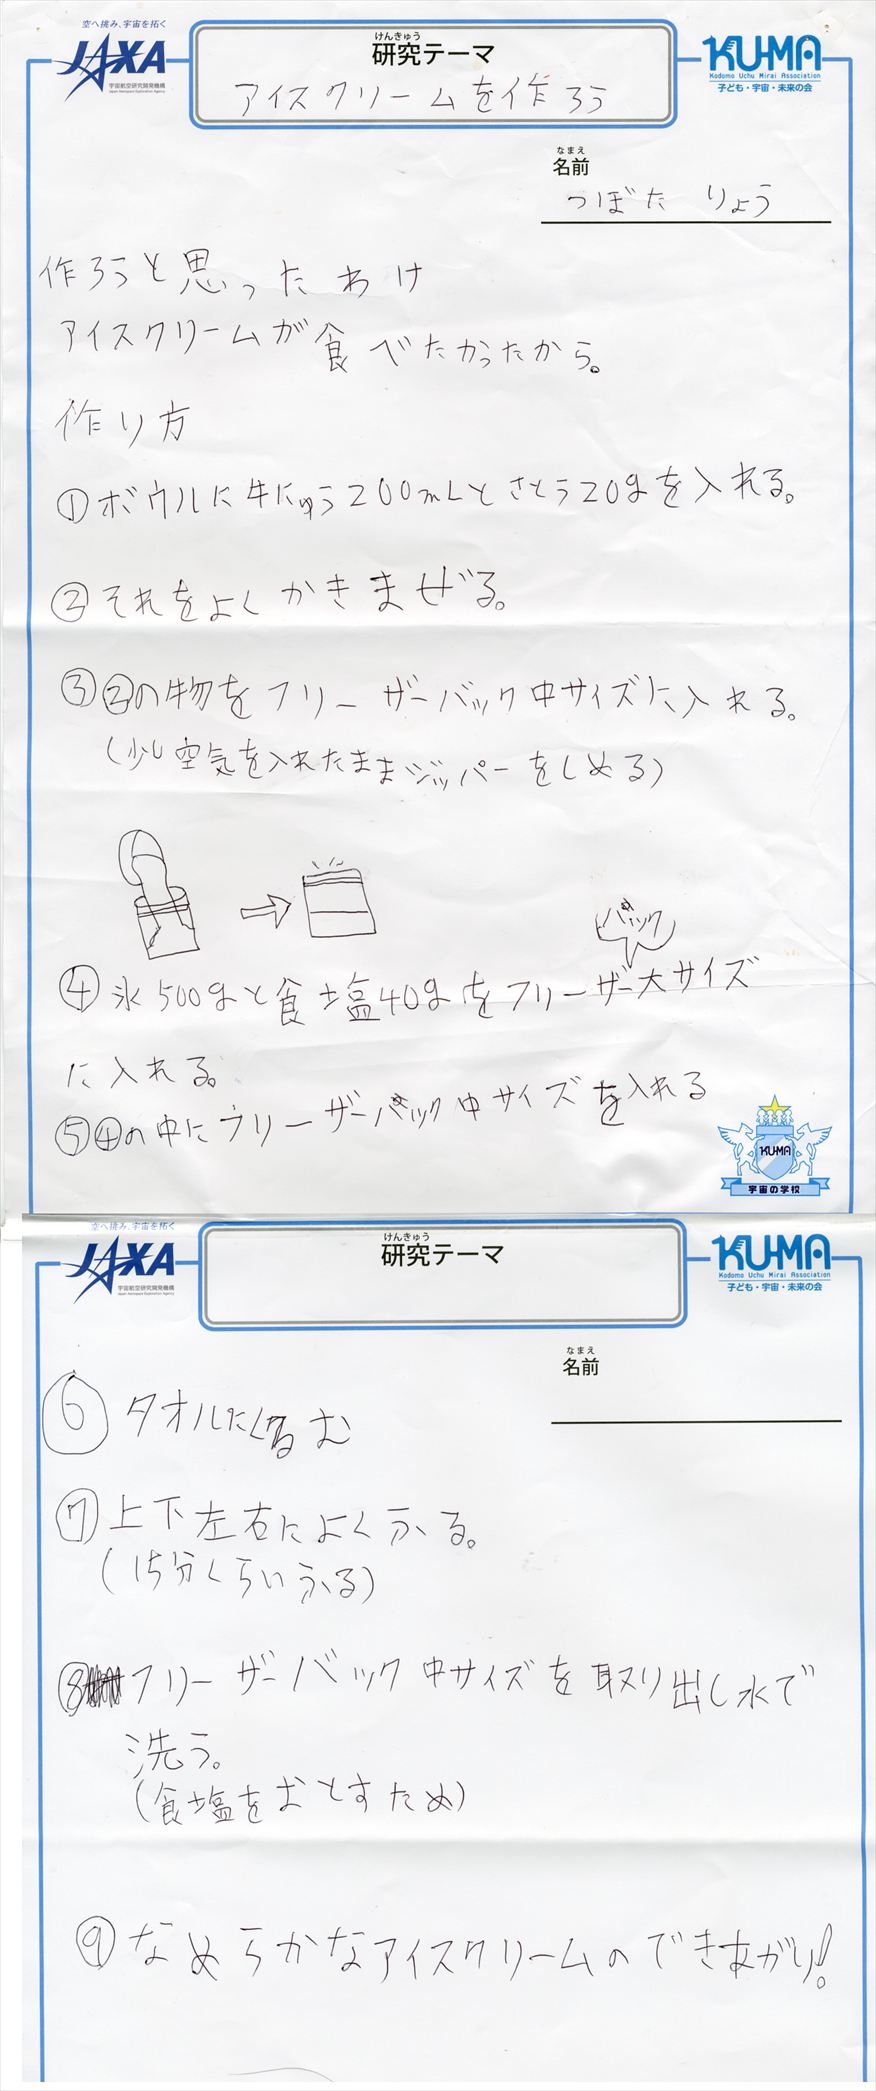 空へ挑み、宇宙を拓く
JAXA
宇宙航空研究開発機構
Japan Aerospace Exploration Agency
けんきゅう
研究テーマ
アイスクリームを作ろう
KU-MA
Kodomo Uchu Mirai Association
子ども・宇宙・未来の会
なまえ
名前
つぼた りょう
作ろうと思ったわけ
アイスクリームが食べたかったから。
作り方
①ボウルに牛にゅう200mLとさとう20gを入れる。
②それをよくかきまぜる。
③②の物をフリーザーバック中サイズに入れる。
(少し空気を入れたままジッパーをしめる)
バック
④氷500gと食塩40gをフリーザー大サイズ
に入れる。
⑤④の中にフリーザーバック中サイズを入れる
KU-MA
宇宙の学校
空へ挑み、宇宙を拓く
JAXA
宇宙航空研究開発機構
Japan Aerospace Exploration Agency
けんきゅう
研究テーマ
KU-MA
Kodomo Uchu Mirai Association
子ども・宇宙・未来の会
なまえ
名前
⑥タオルにくるむ
⑦上下左右によくふる。
(15分くらいふる)
⑧フリーザーバック中サイズを取り出し水で
洗う。
(食塩をおとすため)
⑨なめらかなアイスクリームのできあがり!